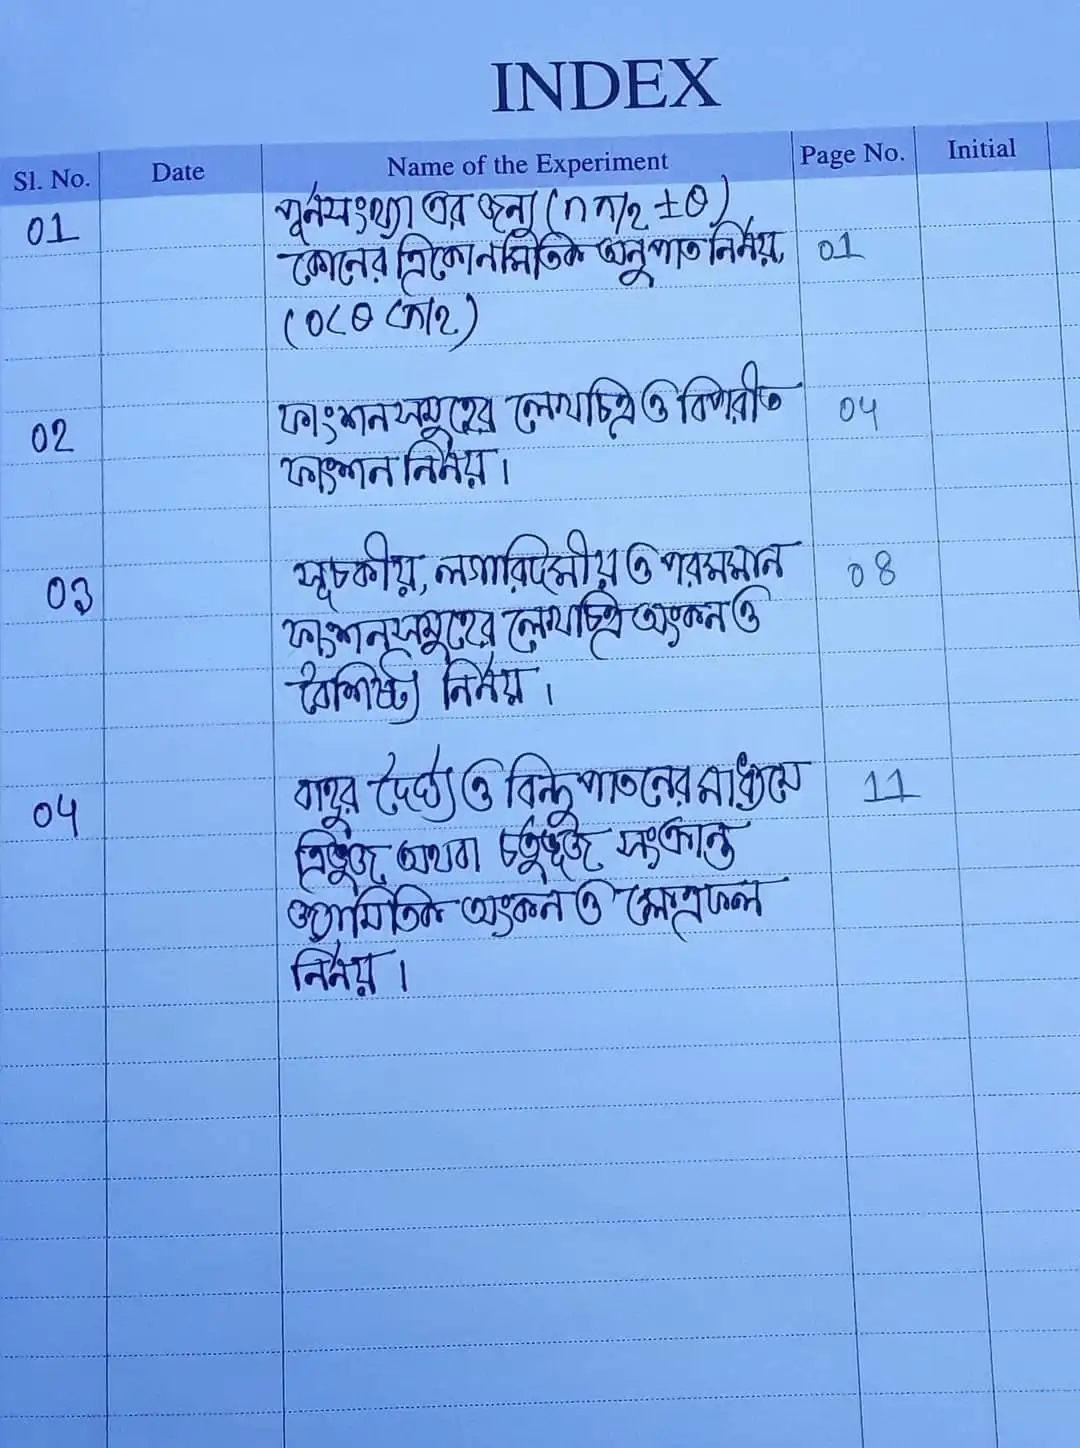 INDEX
Sl. No. Date Name of the Experiment Page No. Initial
01 পূর্নসংখ্যা এর জন্য (nπ/2 ±θ)
কোনের ত্রিকোনমিতিক অনুপাত নির্নয়, 01
(0<θ<π/2)
02 ফাংশনসমুহের লেখচিত্র ও বিপরীত 04
ফাংশন নির্নয়।
03 সূচকীয়, লগারিদমীয় ও পরমমান 08
ফাংশনসমুহের লেখচিত্র অংকন ও
বৈশিষ্ট্য নির্নয়।
04 বাহুর দৈর্ঘ্য ও বিন্দু পাতনের মাধ্যমে 11
ত্রিভুজ অথবা চর্তুভুজ সংক্রান্ত
জ্যামিতিক অংকন ও ক্ষেত্রফল
নির্নয়।